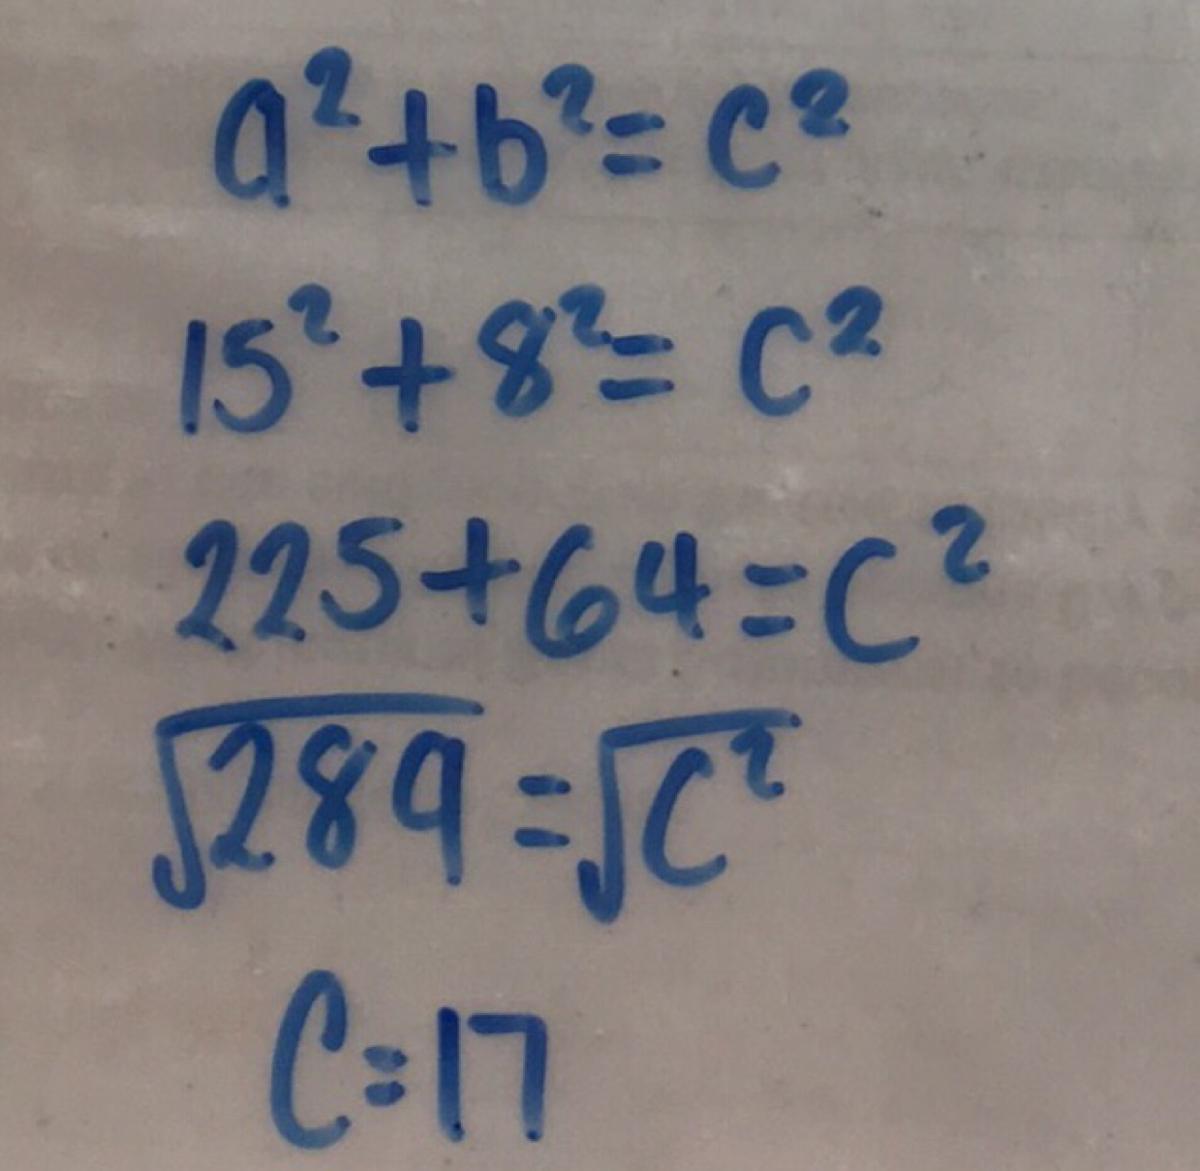 a² + b² = c²
15² + 8² = c²
225 + 64 = c²
√289 = √c²
c = 17